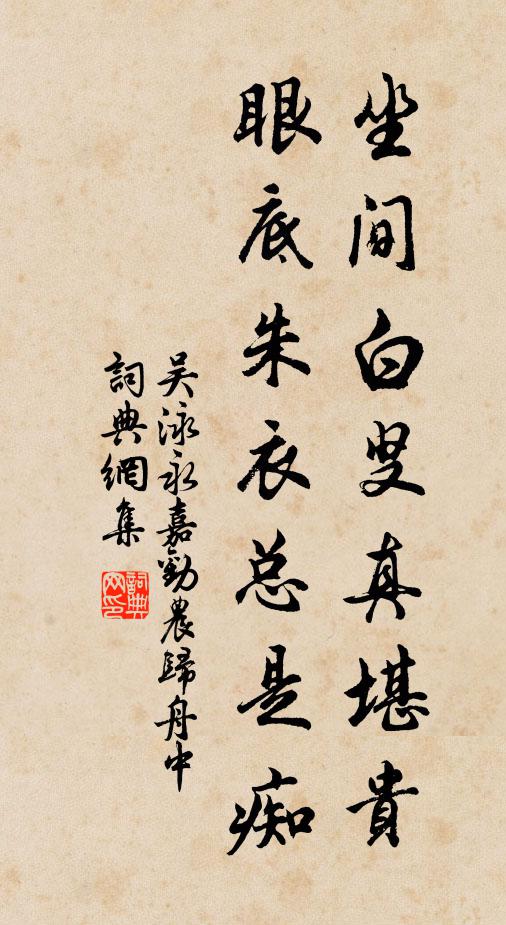 坐间白叟真堪貴
眼底朱衣总是痴
吴泳永嘉勸農歸舟中
詞典網集
詞典
网印